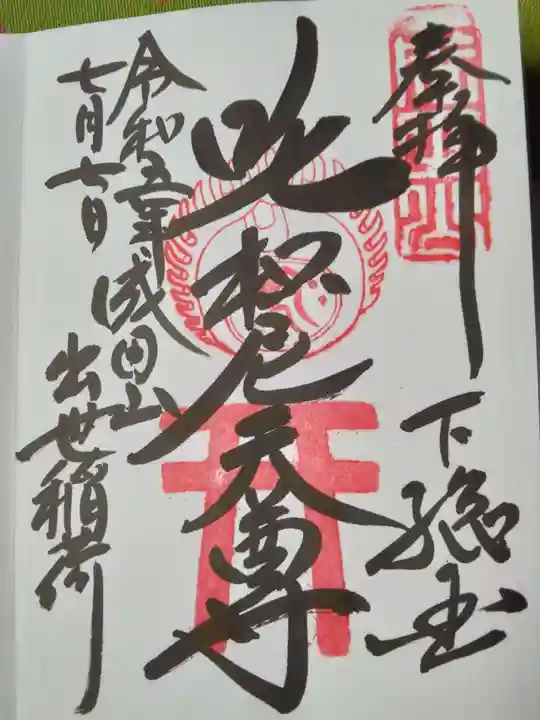 奉拝
下総国
吒枳尼天尊
令和五年 成田山
七月七日
出世稲荷